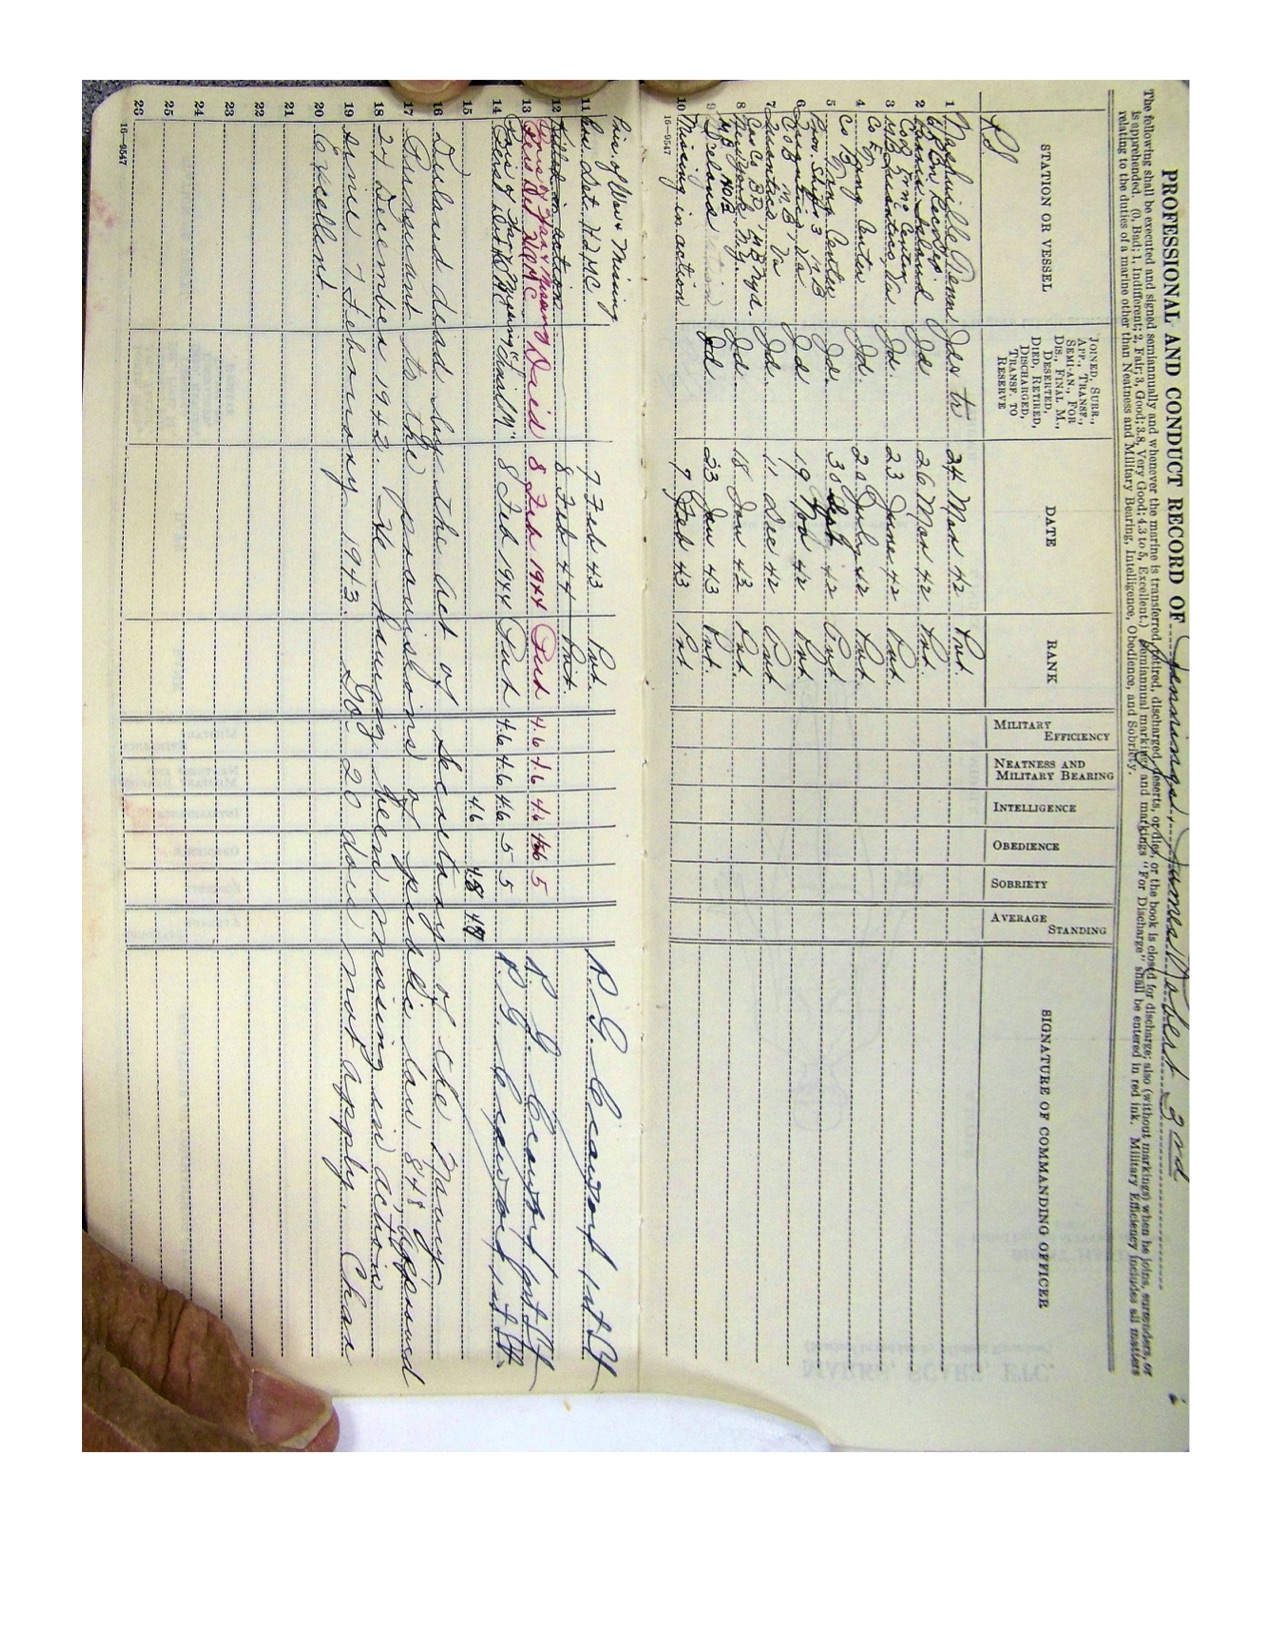 PROFESSIONAL AND CONDUCT RECORD OF Jennings, James Robert 3rd
The following shall be executed and signed semiannually and whenever the marine is transferred, retired, discharged, deserts, or dies, or the book is closed for discharge; also (without markings) when he joins, surrenders, or
is apprehended. (0, Bad; 1, Indifferent; 2, Fair; 3, Good; 3.8, Very Good; 4.3 to 5, Excellent.) Semiannual markings and markings "For Discharge" shall be entered in red ink. Military Efficiency includes all matters
relating to the duties of a marine other than Neatness and Military Bearing, Intelligence, Obedience, and Sobriety.
STATION OR VESSEL
JOINED, SURR., APP., TRANSF., SEMI-AN., FOR DIS., FINAL M., DESERTED, DIED, RETIRED, DISCHARGED, TRANSF. TO RESERVE
DATE
RANK
MILITARY EFFICIENCY
NEATNESS AND MILITARY BEARING
INTELLIGENCE
OBEDIENCE
SOBRIETY
AVERAGE STANDING
SIGNATURE OF COMMANDING OFFICER
RS
1 Nashville Tenn Jd & tr 24 Mar 42 Pvt.
2 Bn Recr Dep Parris Island Jd 26 Mar 42 Pvt.
3 MB Quantico Va Jd. 23 June 42 Pvt.
4 Co E, Trng Center Jd. 20 July 42 Pvt
5 Co B, Trng Center Jd. 30 Sept 42 Pvt
6 Quantico, Va Jd 19 Nov 42 Pvt
7 Quantico, Va Jd. 11 Dec 42 Pvt
8 New York, N.Y. Jd. 18 Jan 43 Pvt.
9 MB, NOB Iceland Jd 23 Jan 43 Pvt.
10 Missing in action 7 Feb 43 Pvt.
16—9547
Pris of War & Missing
11 Pers Det. HQMC 7 Feb 43 Pvt. R. G. Crawford 1st Lt
12 Killed in action 8 Feb 44 Pvt.
Pris of War & Missing
13 Pers Det HQMC Died 8 Feb 1944 Pvt 4.6 4.6 4.6 4.6 5 R G. Crawford 1st Lt
Pris of War & Missing
14 Pers Det HQMC "Final M" 8 Feb 1944 Pvt 4.6 4.6 4.6 5 5 R. G. Crawford 1st Lt.
15 4.6 4.8 4.9
16 Declared dead by the Act of Secretary of the Navy
17 Pursuant to the provisions of public law 848, approved
18 24 December 1942. He having been missing in action
19 since 7 February 1943. GO 20 does not apply. Char
20 Excellent.
21
22
23
24
25
26
16—9547
MARKS, SCARS, ETC.